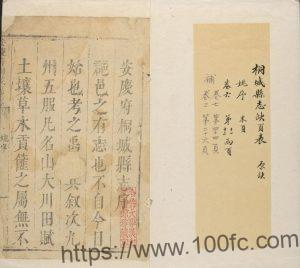 桐城縣志缺頁表 原缺
姚序 末頁
卷六
卷七 第四頁
補 卷二 第二十六頁
安慶府桐城縣志序
㲠邑之有志也不自今日
始也考之禹 具叙次九
州五服凡名山大川田賦
土壤草木貢篚之屬無不
https://www.100fc.com